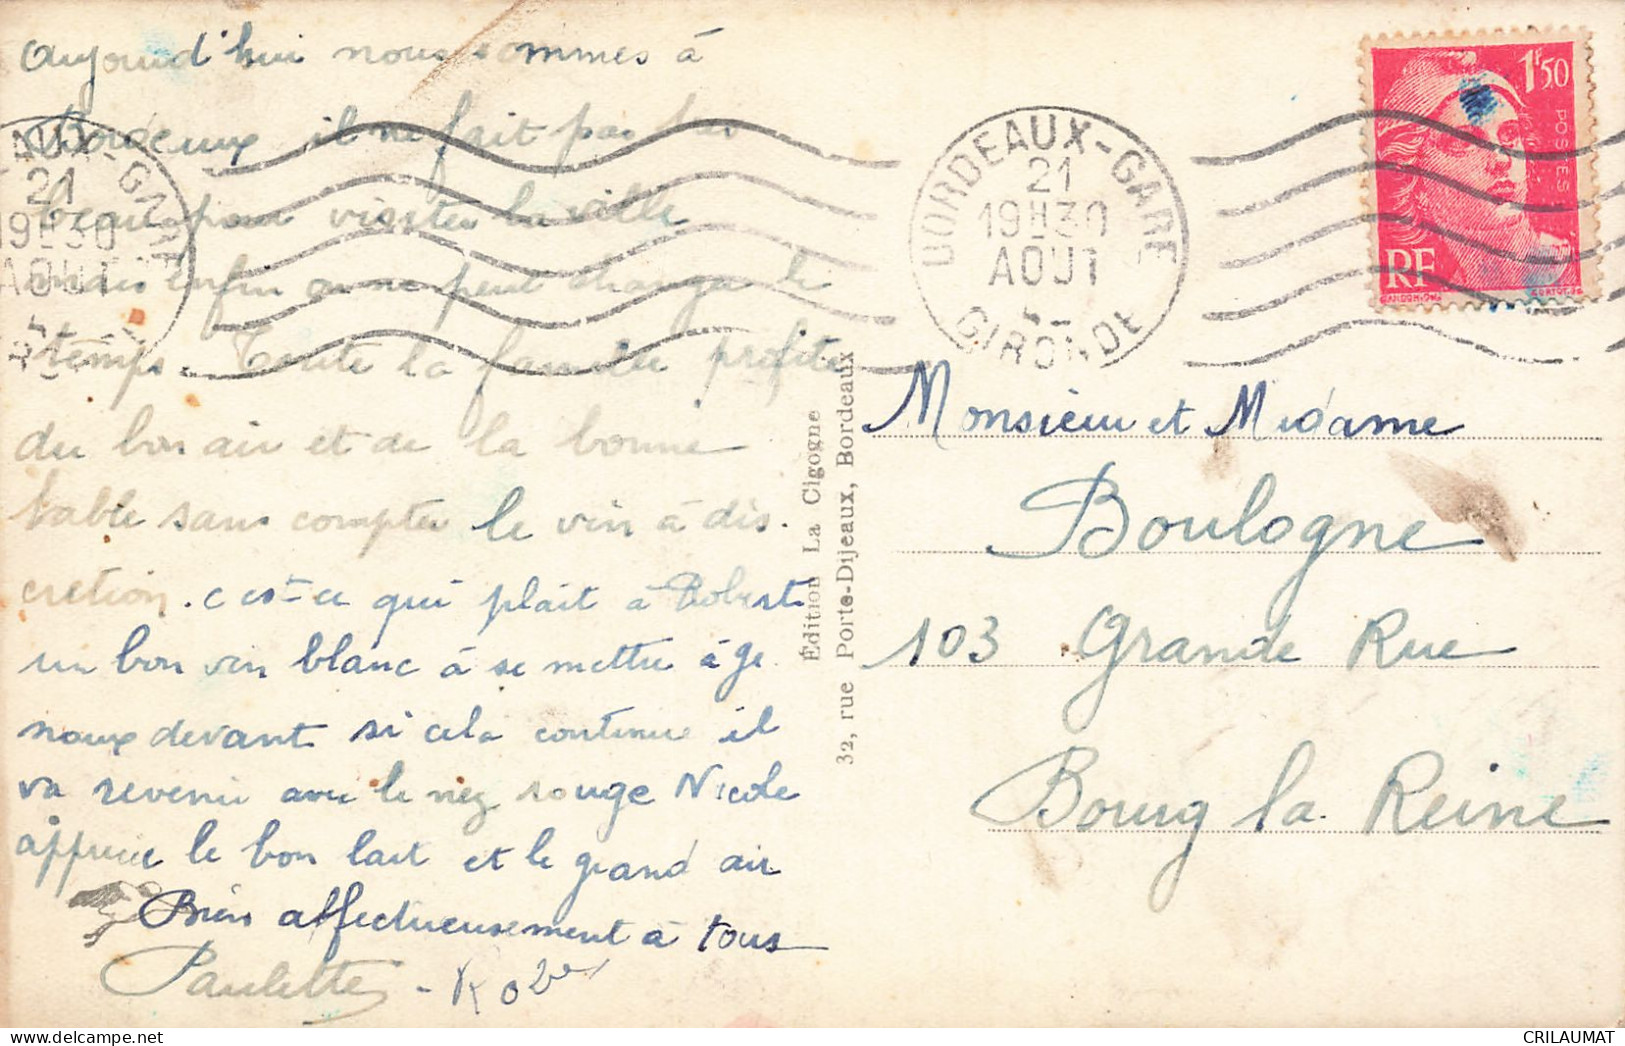 aujourd'hui nous sommes à
Bordeaux il ne fait pas très
beau pour visiter la ville
mais enfin on ne peut changer le
temps. Toute la famille profite
du bon air et de la bonne
table sans compter le vin à dis.
cretion. c'est-ce qui plait à Robert
un bon vin blanc à se mettre à ge
noux devant si cela continue il
va revenir avec le nez rouge Nicole
apprecie le bon lait et le grand air
Bien affectueusement à tous
Paulette - Rober
Édition La Cigogne
32, rue Porte-Dijeaux, Bordeaux
BORDEAUX-GARE
21
19H30
AOUT
GIRONDE
AUX-GARE
21
19H30
AOUT
1F50
POSTES
RF
GANDON
CORTOT
Monsieur et Madame
Boulogne
103 Grande Rue
Bourg la Reine
CRILAUMAT